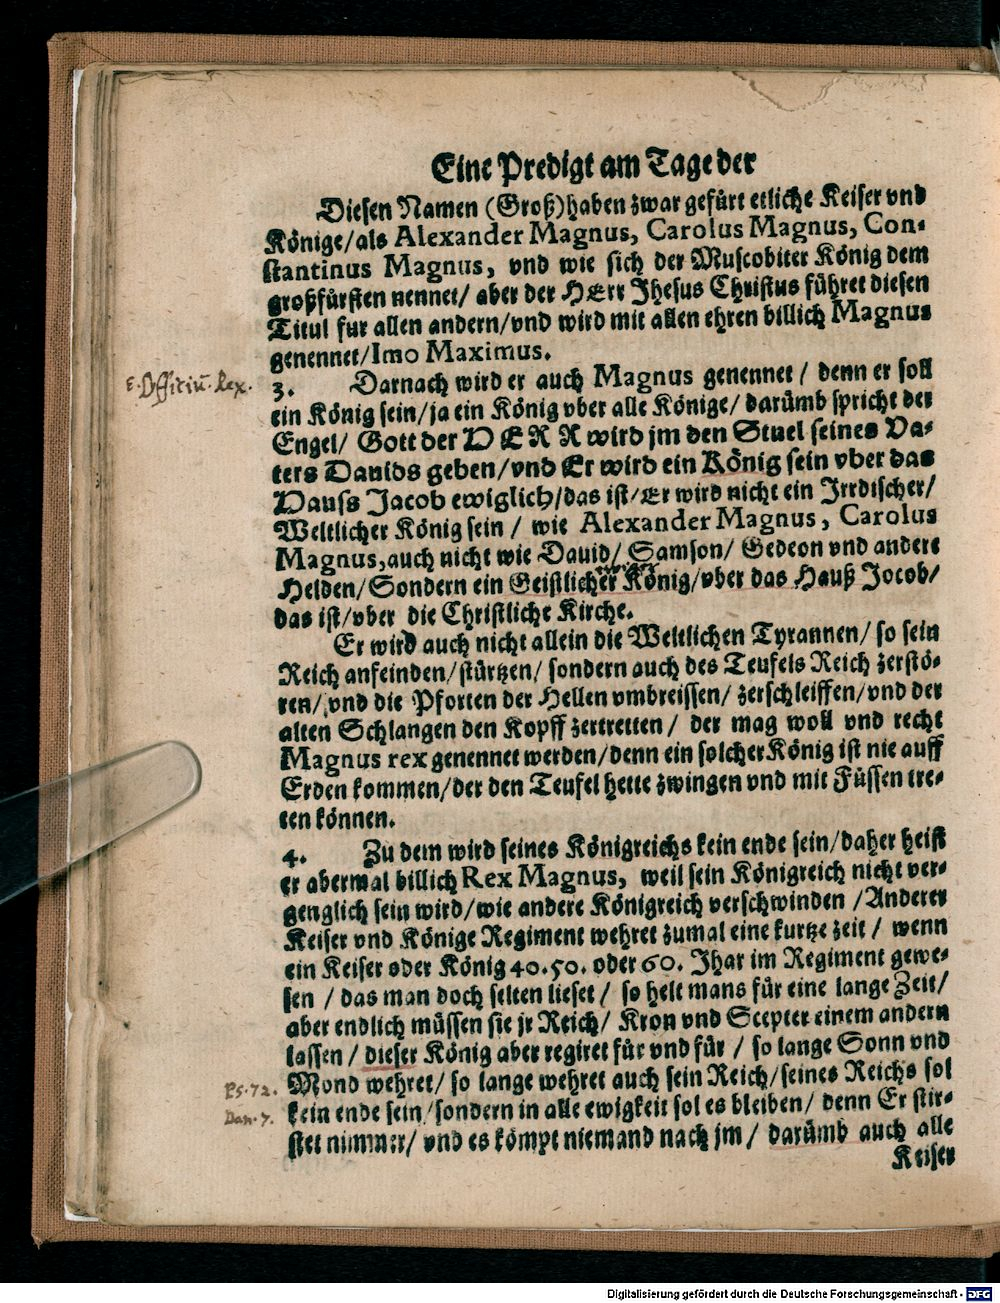 Eine Predigt am Tage der
Diesen Namen (Groß) haben zwar gefürt etliche Keiser vnd
Könige/als Alexander Magnus, Carolus Magnus, Con-
stantinus Magnus, vnd wie sich der Muscobiter König dem
großfürsten nennet/ aber der HErr Jhesus Christus führet diesen
Titul fur allen andern/vnd wird mit allen ehren billich Magnus
genennet/Imo Maximus.
3. Darnach wird er auch Magnus genennet / denn er soll
ein König sein/ja ein König vber alle Könige/ darümb spricht der
Engel/ Gott der HERR wird jm den Stuel seines Va-
ters Dauids geben/vnd Er wird ein König sein vber das
Hauss Jacob ewiglich/das ist/Er wird nicht ein Irrdischer/
Weltlicher König sein / wie Alexander Magnus, Carolus
Magnus,auch nicht wie Dauid/ Samson/ Gedeon vnd andere
Helden/Sondern ein Geistlicher König/vber das Hauß Jocob/
das ist/vber die Christliche Kirche.
Er wird auch nicht allein die Weltlichen Tyrannen/ so sein
Reich anfeinden/stürtzen/ sondern auch des Teufels Reich zerstö-
ren/ vnd die Pforten der Hellen vmbreissen/ zerschleiffen/vnd der
alten Schlangen den Kopff zertretten / der mag woll vnd recht
Magnus rex genennet werden/denn ein solcher König ist nie auff
Erden kommen/der den Teufel hette zwingen vnd mit Füssen tre-
ten können.
4. Zu dem wird seines Königreichs kein ende sein/daher heist
er abermal billich Rex Magnus, weil sein Königreich nicht ver-
genglich sein wird/wie andere Königreich verschwinden /Anderer
Keiser vnd Könige Regiment wehret zumal eine kurtze zeit / wenn
ein Keiser oder König 40.50. oder 60. Jhar im Regiment gewe-
sen / das man doch selten lieset / so helt mans für eine lange Zeit/
aber endlich müssen sie jr Reich/ Kron vnd Scepter einem andern
lassen / dieser König aber regiret für vnd für / so lange Sonn vnd
Mond wehret/ so lange wehret auch sein Reich/seines Reichs sol
kein ende sein/sondern in alle ewigkeit sol es bleiben/ denn Er stir-
bet nimmer/ vnd es kömpt niemand nach jm / darümb auch alle
Keiser
E. Officiũ. Rex.
Ps. 72.
Dan. 7.
Digitalisierung gefördert durch die Deutsche Forschungsgemeinschaft - DFG